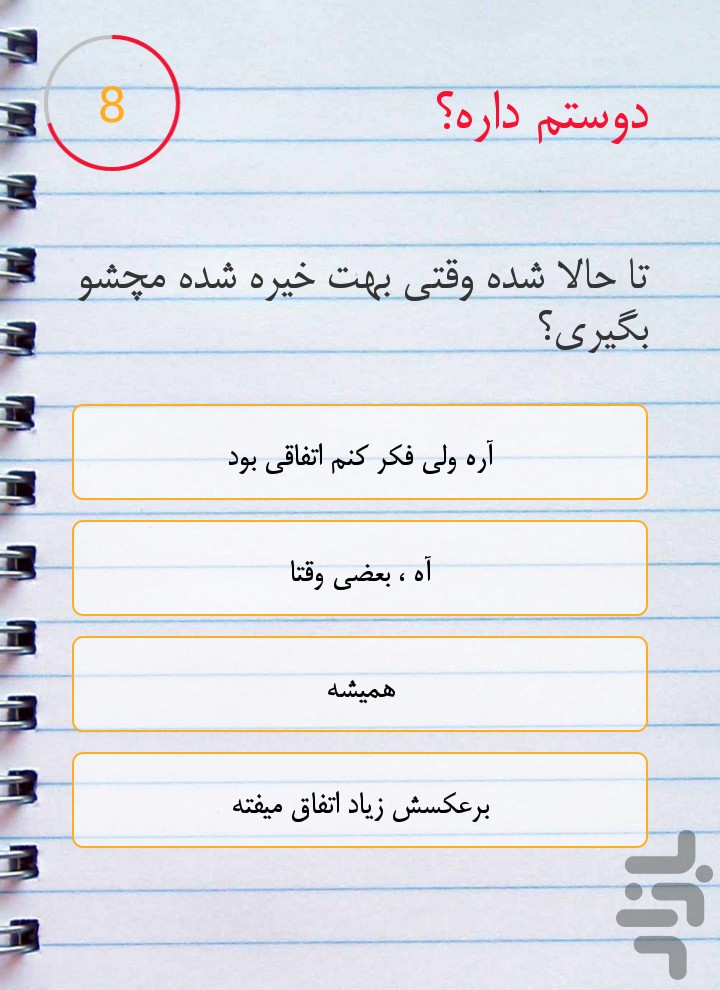 8
دوستم داره؟
تا حالا شده وقتی بهت خیره شده مچشو
بگیری؟
آره ولی فکر کنم اتفاقی بود
آه ، بعضی وقتا
همیشه
برعکسش زیاد اتفاق میفته
بازار